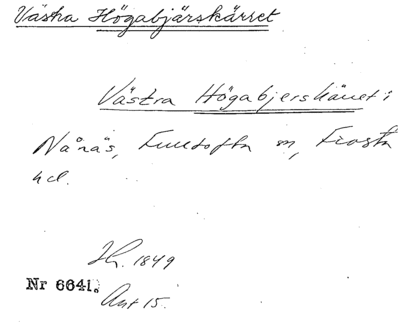 Västra Högabjärskärret
Västra Högabjerskäret i
Nånäs, Fulltofta sn, Frosta
hd.
Hr. 1849
Nr 6641.
Akt 15.